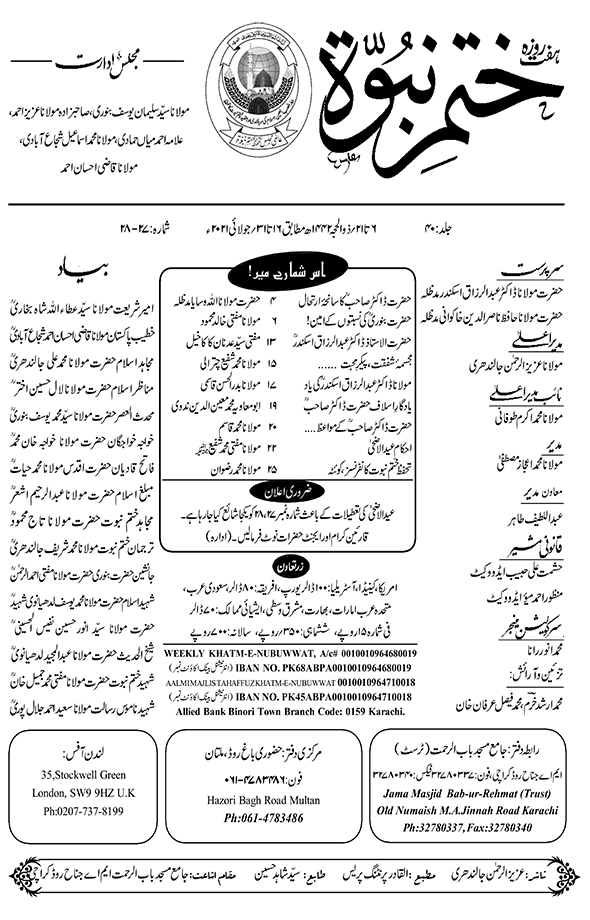 ہفت روزہ
ختم نبوۃ
مجلس ادارت
مولانا سیّد سلیمان یوسف بنوری، صاحبزادہ مولانا عزیز احمد،
علامہ احمد میاں حمادی، مولانا محمد اسماعیل شجاع آبادی،
مولانا قاضی احسان احمد
جلد: ۴۰
۶ تا ۲۱؍ ذوالحجہ ۱۴۴۲ھ مطابق ۱۶ تا ۳۱؍ جولائی ۲۰۲۱ء
شمارہ: ۲۷-۲۸
سرپرست
حضرت مولانا ڈاکٹر عبدالرزاق اسکندر مدظلہ
حضرت مولانا حافظ ناصر الدین خاکوانی مدظلہ
مدیر اعلیٰ
مولانا عزیز الرحمٰن جالندھری
نائب مدیر اعلیٰ
مولانا محمد اکرم طوفانی
مدیر
مولانا محمد اعجاز مصطفیٰ
معاون مدیر
عبداللطیف طاہر
قانونی مشیر
حشمت علی حبیب ایڈووکیٹ
منظور احمد میؤ ایڈووکیٹ
سرکولیشن منیجر
محمد انور رانا
تزئین و آرائش:
محمد ارشد خرم، محمد فیصل عرفان خان
اس شمارے میں!
حضرت ڈاکٹر صاحبؒ کا سانحۂ ارتحال ۴ حضرت مولانا اللہ وسایا مدظلہ
حضرت بنوریؒ کی نسبتوں کے امین! ۶ مولانا مفتی خالد محمود
حضرت الاستاذ ڈاکٹر عبدالرزاق اسکندرؒ ۱۳ مفتی سیّد عدنان کاکاخیل
مجسمۂ شفقت، پیکرِ محبت ...... ۱۵ مولانا محمد شفیع چترالی
مولانا ڈاکٹر عبدالرزاق اسکندرؒ کی یاد ۱۷ مولانا بدر الحسن قاسمی
یادگارِ اسلاف حضرت ڈاکٹر صاحبؒ ۱۹ ابو معاویہ محمد معین الدین ندوی
حضرت ڈاکٹر صاحبؒ کے مواعظ.... ۲۰ مولانا محمد قاسم
احکام عید الاضحیٰ ۲۲ مولانا مفتی محمد شفیعؒ
تحفظ ختم نبوت کانفرنس، کوئٹہ ۲۵ مولانا محمد رضوان
ضروری اعلان
عیدالاضحیٰ کی تعطیلات کے باعث شمارہ نمبر ۲۷، ۲۸ کو یکجا شائع کیا جارہا ہے۔
قارئین کرام اور ایجنٹ حضرات نوٹ فرمالیں۔ (ادارہ)
زرتعاون
امریکا، کینیڈا، آسٹریلیا: ۱۰۰ ڈالر یورپ، افریقہ: ۸۰ ڈالر، سعودی عرب،
متحدہ عرب امارات، بھارت، مشرق وسطیٰ، ایشیائی ممالک: ۷۰ ڈالر
فی شمارہ ۱۵ روپے، ششماہی: ۳۵۰ روپے، سالانہ: ۷۰۰ روپے
WEEKLY KHATM-E-NUBUWWAT, A/c# 0010010964680019
(انٹرنیشنل بینک اکاؤنٹ نمبر) IBAN NO. PK68ABPA0010010964680019
AALMIMAJLISTAHAFFUZKHATM-E-NUBUWWAT 0010010964710018
(انٹرنیشنل بینک اکاؤنٹ نمبر) IBAN NO. PK45ABPA0010010964710018
Allied Bank Binori Town Branch Code: 0159 Karachi.
بیاد
امیر شریعت مولانا سیّد عطاء اللہ شاہ بخاریؒ
خطیب پاکستان مولانا قاضی احسان احمد شجاع آبادیؒ
مجاہد اسلام حضرت مولانا محمد علی جالندھریؒ
مناظر اسلام حضرت مولانا لال حسین اخترؒ
محدث العصر حضرت مولانا سیّد محمد یوسف بنوریؒ
خواجہ خواجگان حضرت مولانا خواجہ خان محمدؒ
فاتح قادیان حضرت اقدس مولانا محمد حیاتؒ
مبلغ اسلام حضرت مولانا عبدالرحیم اشعرؒ
مجاہد ختم نبوت حضرت مولانا تاج محمودؒ
ترجمان ختم نبوت حضرت مولانا محمد شریف جالندھریؒ
جانشین حضرت بنوری حضرت مولانا مفتی احمد الرحمٰنؒ
شہید اسلام حضرت مولانا محمد یوسف لدھیانوی شہیدؒ
حضرت مولانا سیّد انور حسین نفیس الحسینیؒ
شیخ الحدیث حضرت مولانا عبدالمجید لدھیانویؒ
شہید ختم نبوت حضرت مولانا مفتی محمد جمیل خانؒ
شہید ناموس رسالت مولانا سعید احمد جلال پوریؒ
رابطہ دفتر: جامع مسجد باب الرحمت (ٹرسٹ)
ایم اے جناح روڈ کراچی، فون: ۳۲۷۸۰۳۳۷ فیکس: ۳۲۷۸۰۳۴۰
Jama Masjid Bab-ur-Rehmat (Trust)
Old Numaish M.A.Jinnah Road Karachi
Ph:32780337, Fax:32780340
مرکزی دفتر: حضوری باغ روڈ، ملتان
فون: ۰۶۱-۴۷۸۳۴۸۶
Hazori Bagh Road Multan
Ph:061-4783486
لندن آفس:
35,Stockwell Green
London, SW9 9HZ U.K
Ph:0207-737-8199
ناشر: عزیز الرحمٰن جالندھری مطبع: القادر پرنٹنگ پریس طابع: سیّد شاہد حسین مقام اشاعت: جامع مسجد باب الرحمت ایم اے جناح روڈ کراچی